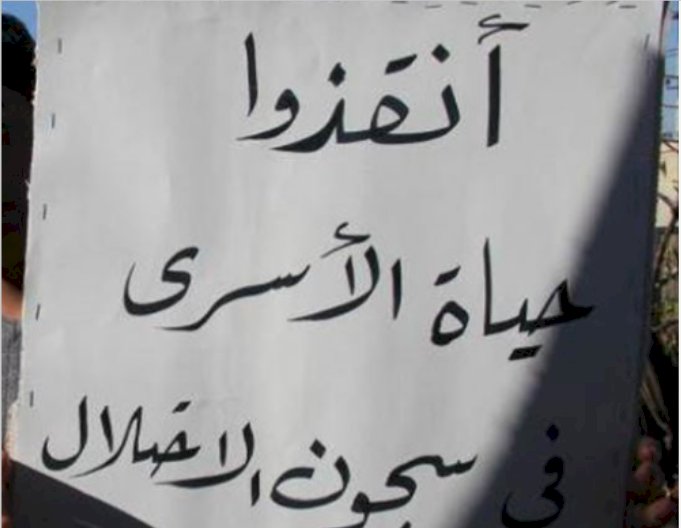 أنقذوا
حياة الأسرى
في سجون الاحتلال